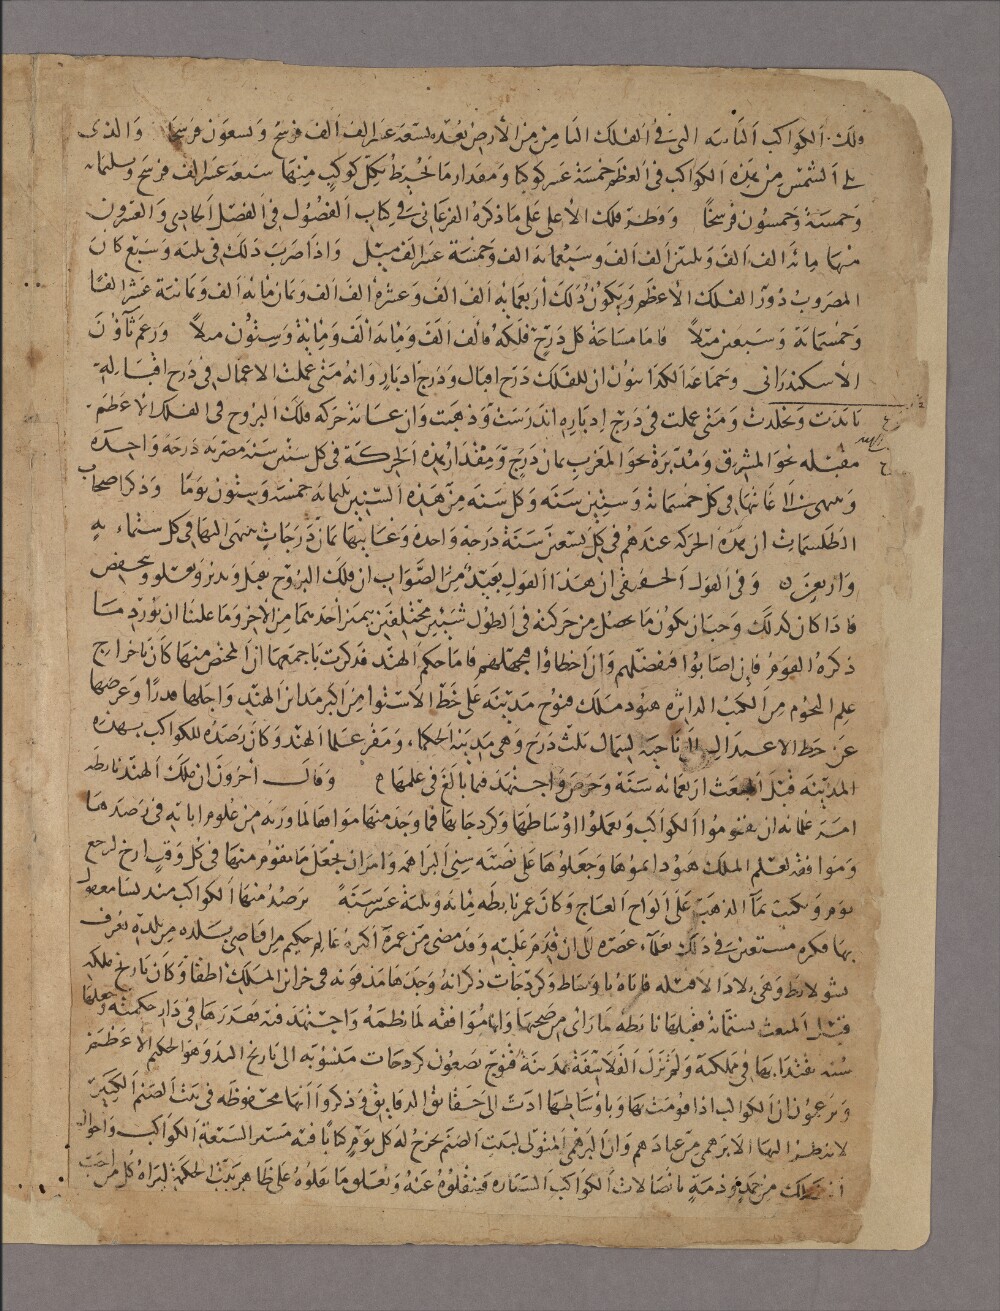 الكواكب الثابتة التى فى الفلك الثامن من الأرض بعده تسعة عشر الف الف فرسخ وتسعون فرسخا والذى
يلى الشمس من هذه الكواكب فى العظم خمسة عشر كوكبا ومقدار ما يحيط بكل كوكب منها سبعة عشر الف فرسخ وثلثمائه
وخمسة وخمسون فرسخا الاعلى على ما ذكره الفرغانى فى كتاب الفصول فى الفصل الحادى والعشرون
منها مائة الف الف وثلثين الف الف وسبعمائه الف وخمسة عشر الف ميل واذا ضرب ذلك فى ثلثه وسبع كان
المضروب دور الفلك الاعظم ويكون ذلك اربعمائه الف الف وعشرة الف الف وثمانمائه الف وثمانية عشر الفا
وخمسمائة وسبعين ميلا فاما مساحة كل درج فلكه فالف الف ومائه الف ومائة وستون ميلا وزعم ثاون
الاسكندرانى وجماعه الكلدانيون ان للفلك درج اقبال ودرج ادبار وانه متى عملت الاعمال فى درج اقباله
تأبدت وتخلدت ومتى عملت فى درج ادباره اندرست وذهبت وان غاية حركه فلك البروج فى الفلك الاعظم
مقبله نحو المشرق ومدبرة نحو المغرب ثمان درج ومقدار هذه الحركة فى كل ستين سنة درجة واحدة
وستين سنه وكل سنه من هذه السنين ثلثمائه خمسة وستون يوما وذكر اصحاب
الطلسمات ان هذه الحركه عندهم فى كل تسعين سنة درجة واحدة وغايتها ثمان درجات ينتهى اليها فى كل ستمائه
واربعين وفى القول الحقيقى ان هذا القول بعيد من الصواب ان فلك البروج يقبل ويدبر ويعلو وينخفض
فاذا كان كذلك وجب ان يكون ما يحصل من حركته فى الطول شيئين مختلفين يميز احدهما من الاخر وما علينا ان نورد ما
ذكره القوم فان اصابوا فبفضلهم وان اخطاوا فبجهلهم فاما حكم الهند فذكرت باجمعها ان المحض منها كان باخراج
علم النجوم من الكتب الداثره هنود ملك قنوج مدينه على خط الاستوا من اكبر مدائن الهند واجلها قدرا وعرضها
عن خط الاعتدال الى ناحية الشمال ثلث درج وهى مدينة الحكماء ومقر علما الهند وكان رصده للكواكب بهذه
المدينه قبل المبعث اربعمائه سنة وحرص واجتهد فما بالغ فى علمها وقال اخرون ان ملك الهند ناطه
امر علمائه ان يقوموا الكواكب ويعملوا اوساطها وكردجاتها فما وجد منها موافقا لما ورثه من علوم ابائه فى رصدها
وموافقه لعلم الملك هنود وجعلوها على نصته سنى البراهمه وامر ان يجعل ما يقوم منها فى كل وقت
يوم ويكتب بماء الذهب على الواح العاج وكان عمر ناطه مائه وثلثة عشر سنة يرصد منها الكواكب
بها فكره مستعين فى ذلك بعلماء عصره الى ان قدم عليه وقد مضى من عمره اكبره عالم حكيم من اقاصى بلده من بلدة تعرف
وهى بلاد فاتاه باوساط وكردجات ذكر انه وجدها مدفونه فى خزائن الملك وكان تاريخ ملكه
قبل المبعث بستمائه فقبلها ناطه ما راى من صحتها وانها موافقه لما نظمه واجتهد فيه فقدرها فى دار حكمته وجعلها
سنه يقتدا بها فى مملكته ولم تزل الفلاسفة بمدينة قنوج يصنعون كردجات منسوبه الى تاريخ وهو الحكيم الاعظم
ويزعمون ان الكواكب اذا قومت بها وباوساطها ادت الى حقائق الدقايق وذكروا انها محفوظه فى بيت الصنم الكبير
لا ينظر اليها الا برهمى من عبادهم وان البرهمى المتولى لبيت الصنم يخرج له كل يوم كتابا فيه مسير السبعة الكواكب واحوال
من حمد وذمة باتصالات الكواكب السيارة فينقلوه عنه وينقلو ما نقلوه على ظاهر بيت الحكمة ليراه كل من احب